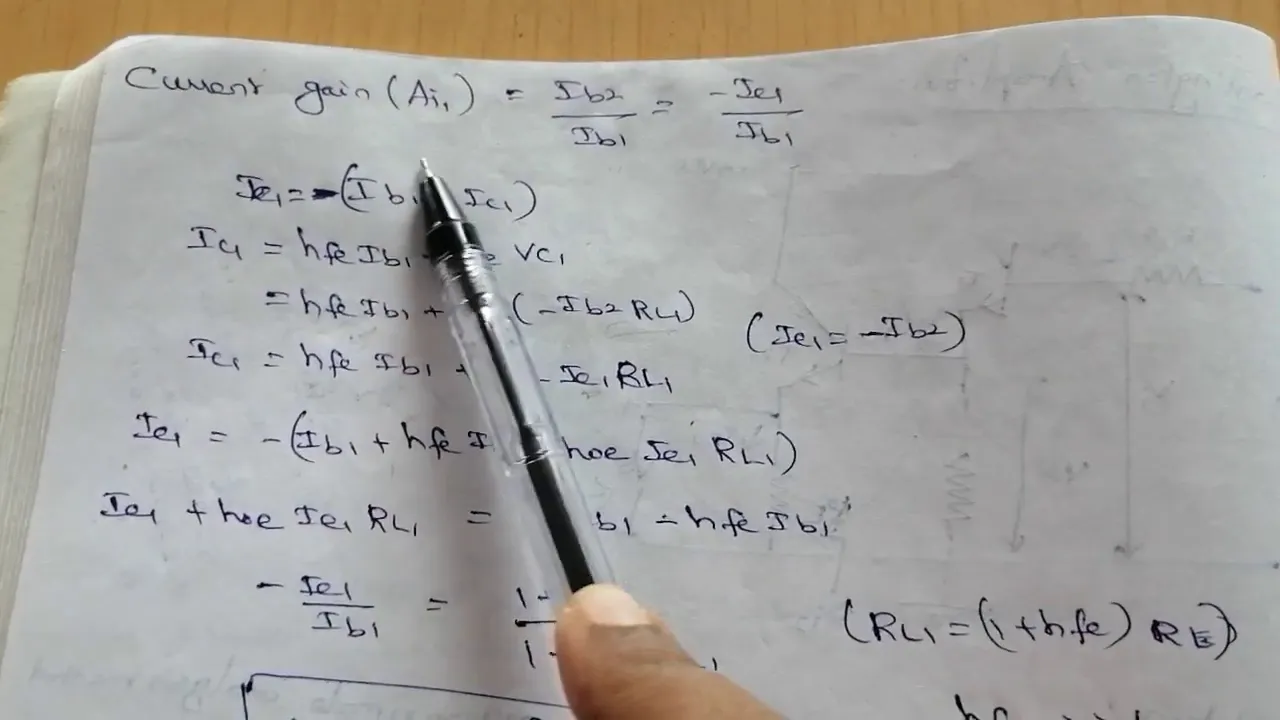 Current gain (Ai1) = Ib2/Ib1 = -Ie1/Ib1
Ie1 = -(Ib1 Ic1)
Ic1 = hfe Ib1 Vc1
= hfe Ib1 + (-Ib2 RL1)
(Ie1 = -Ib2)
Ic1 = hfe Ib1 - Ie1 RL1
Ie1 = -(Ib1 + hfe I hoe Ie1 RL1)
Ie1 + hoe Ie1 RL1 = b1 - hfe Ib1
-Ie1/Ib1 =
(RL1 = (1+hfe) RE)